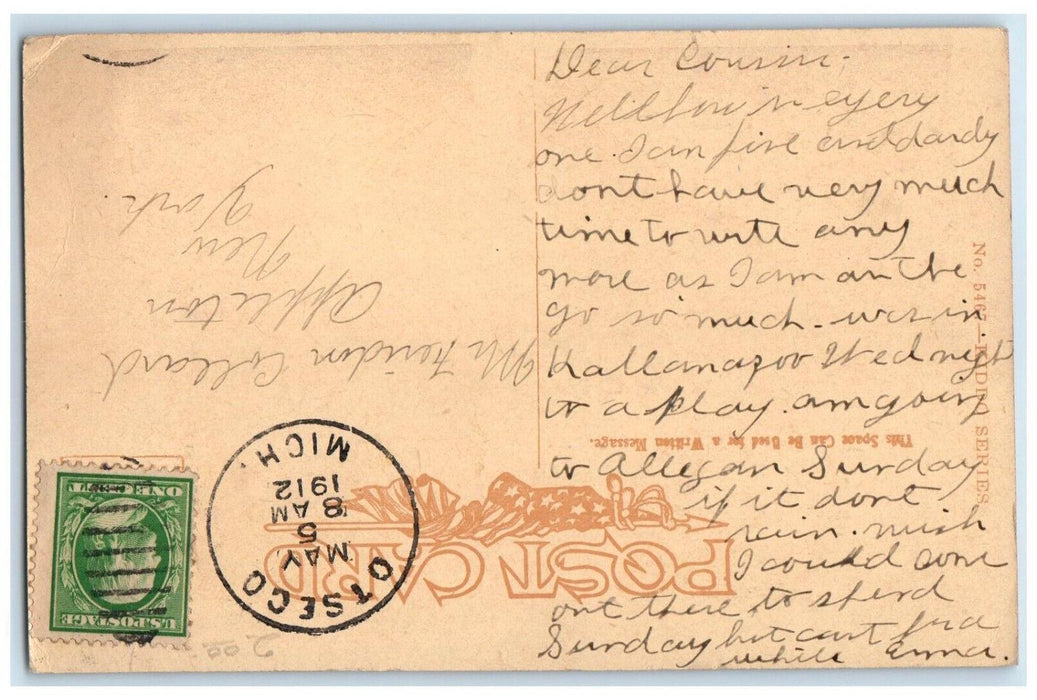 Dear Cousin;
Well how is every
one. I am fine and dandy
dont have very much
time to write any
more as I am on the
go so much. was in
Kallamazoo Wed night
to a play. am going
to Allegan Sunday
if it dont
rain. wish
I could come
out there to spend
Sunday but cant for a
while Erma.
No. 546 — SERIES
This Space Can Be Used for a Written Message.
POST CARD
OTSEGO
MAY
5
8 AM
1912
MICH.
U.S. POSTAGE
ONE
Mr Collard
Appleton
New
York
200